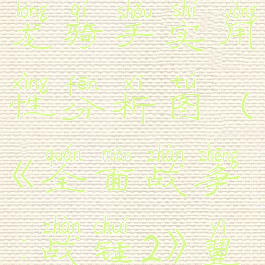 lóng qí shǒu shí yòng
龙骑手实用
xìng fēn xī tú
性分析图（
quán miàn zhàn zhēng
《全面战争
zhàn chuí
战锤2》